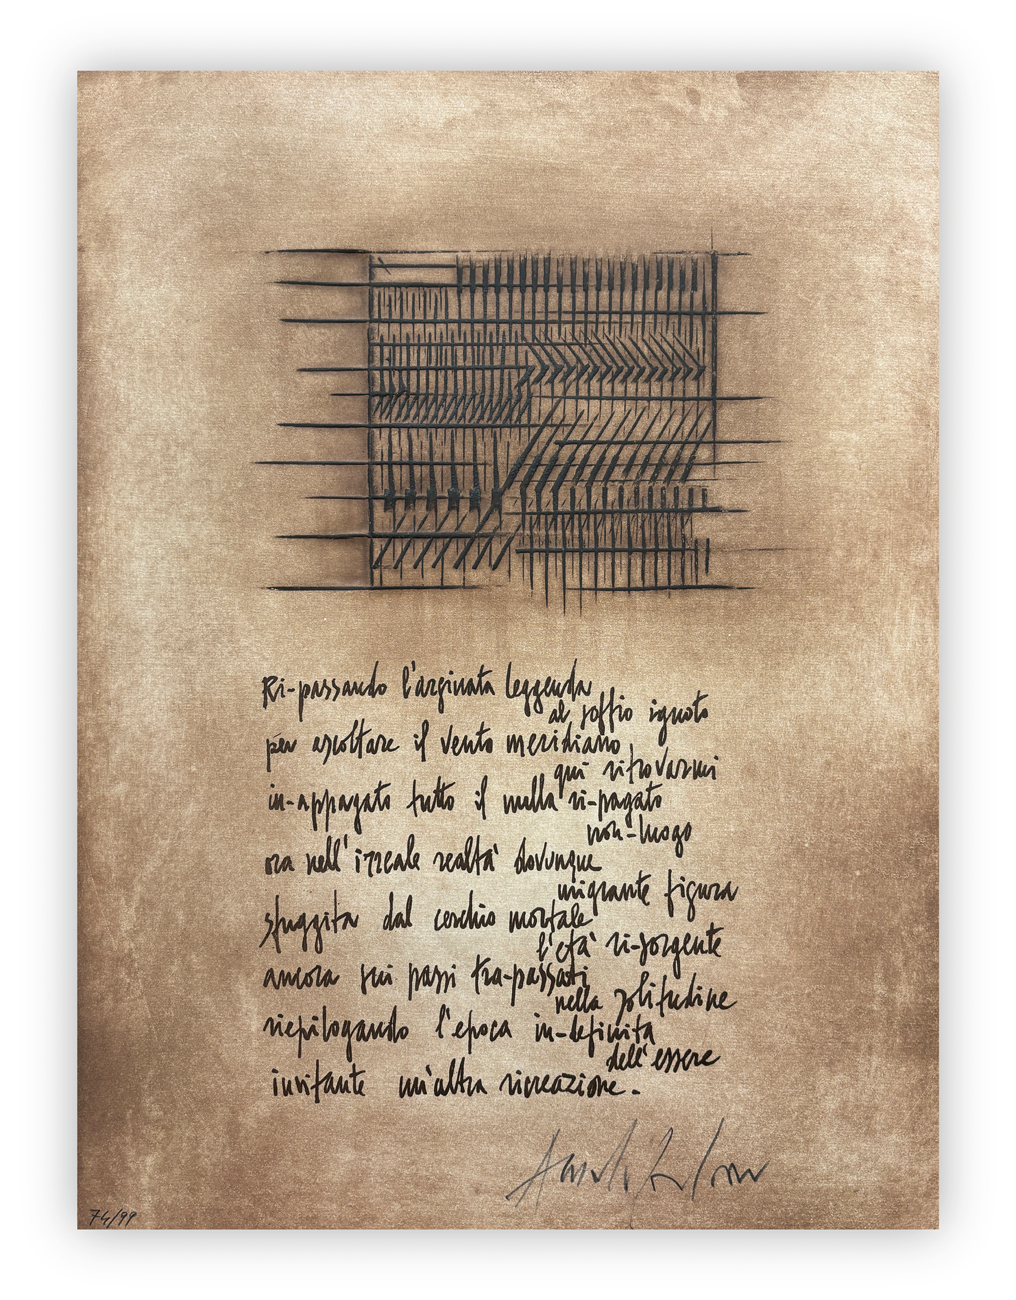 Ri-passando l'arginata leggenda
al soffio ignoto
per ascoltare il vento meridiano
qui ritrovarmi
in-appagato tutto il nulla ri-pagato
non-luogo
ora nell'irreale realtà dovunque
migrante figura
sfuggita dal cerchio mortale
l'età ri-sorgente
ancora sui passi tra-passati
nella solitudine
riepilogando l'epoca in-definita
dell'essere
invitante un'altra ricreazione.
74/99